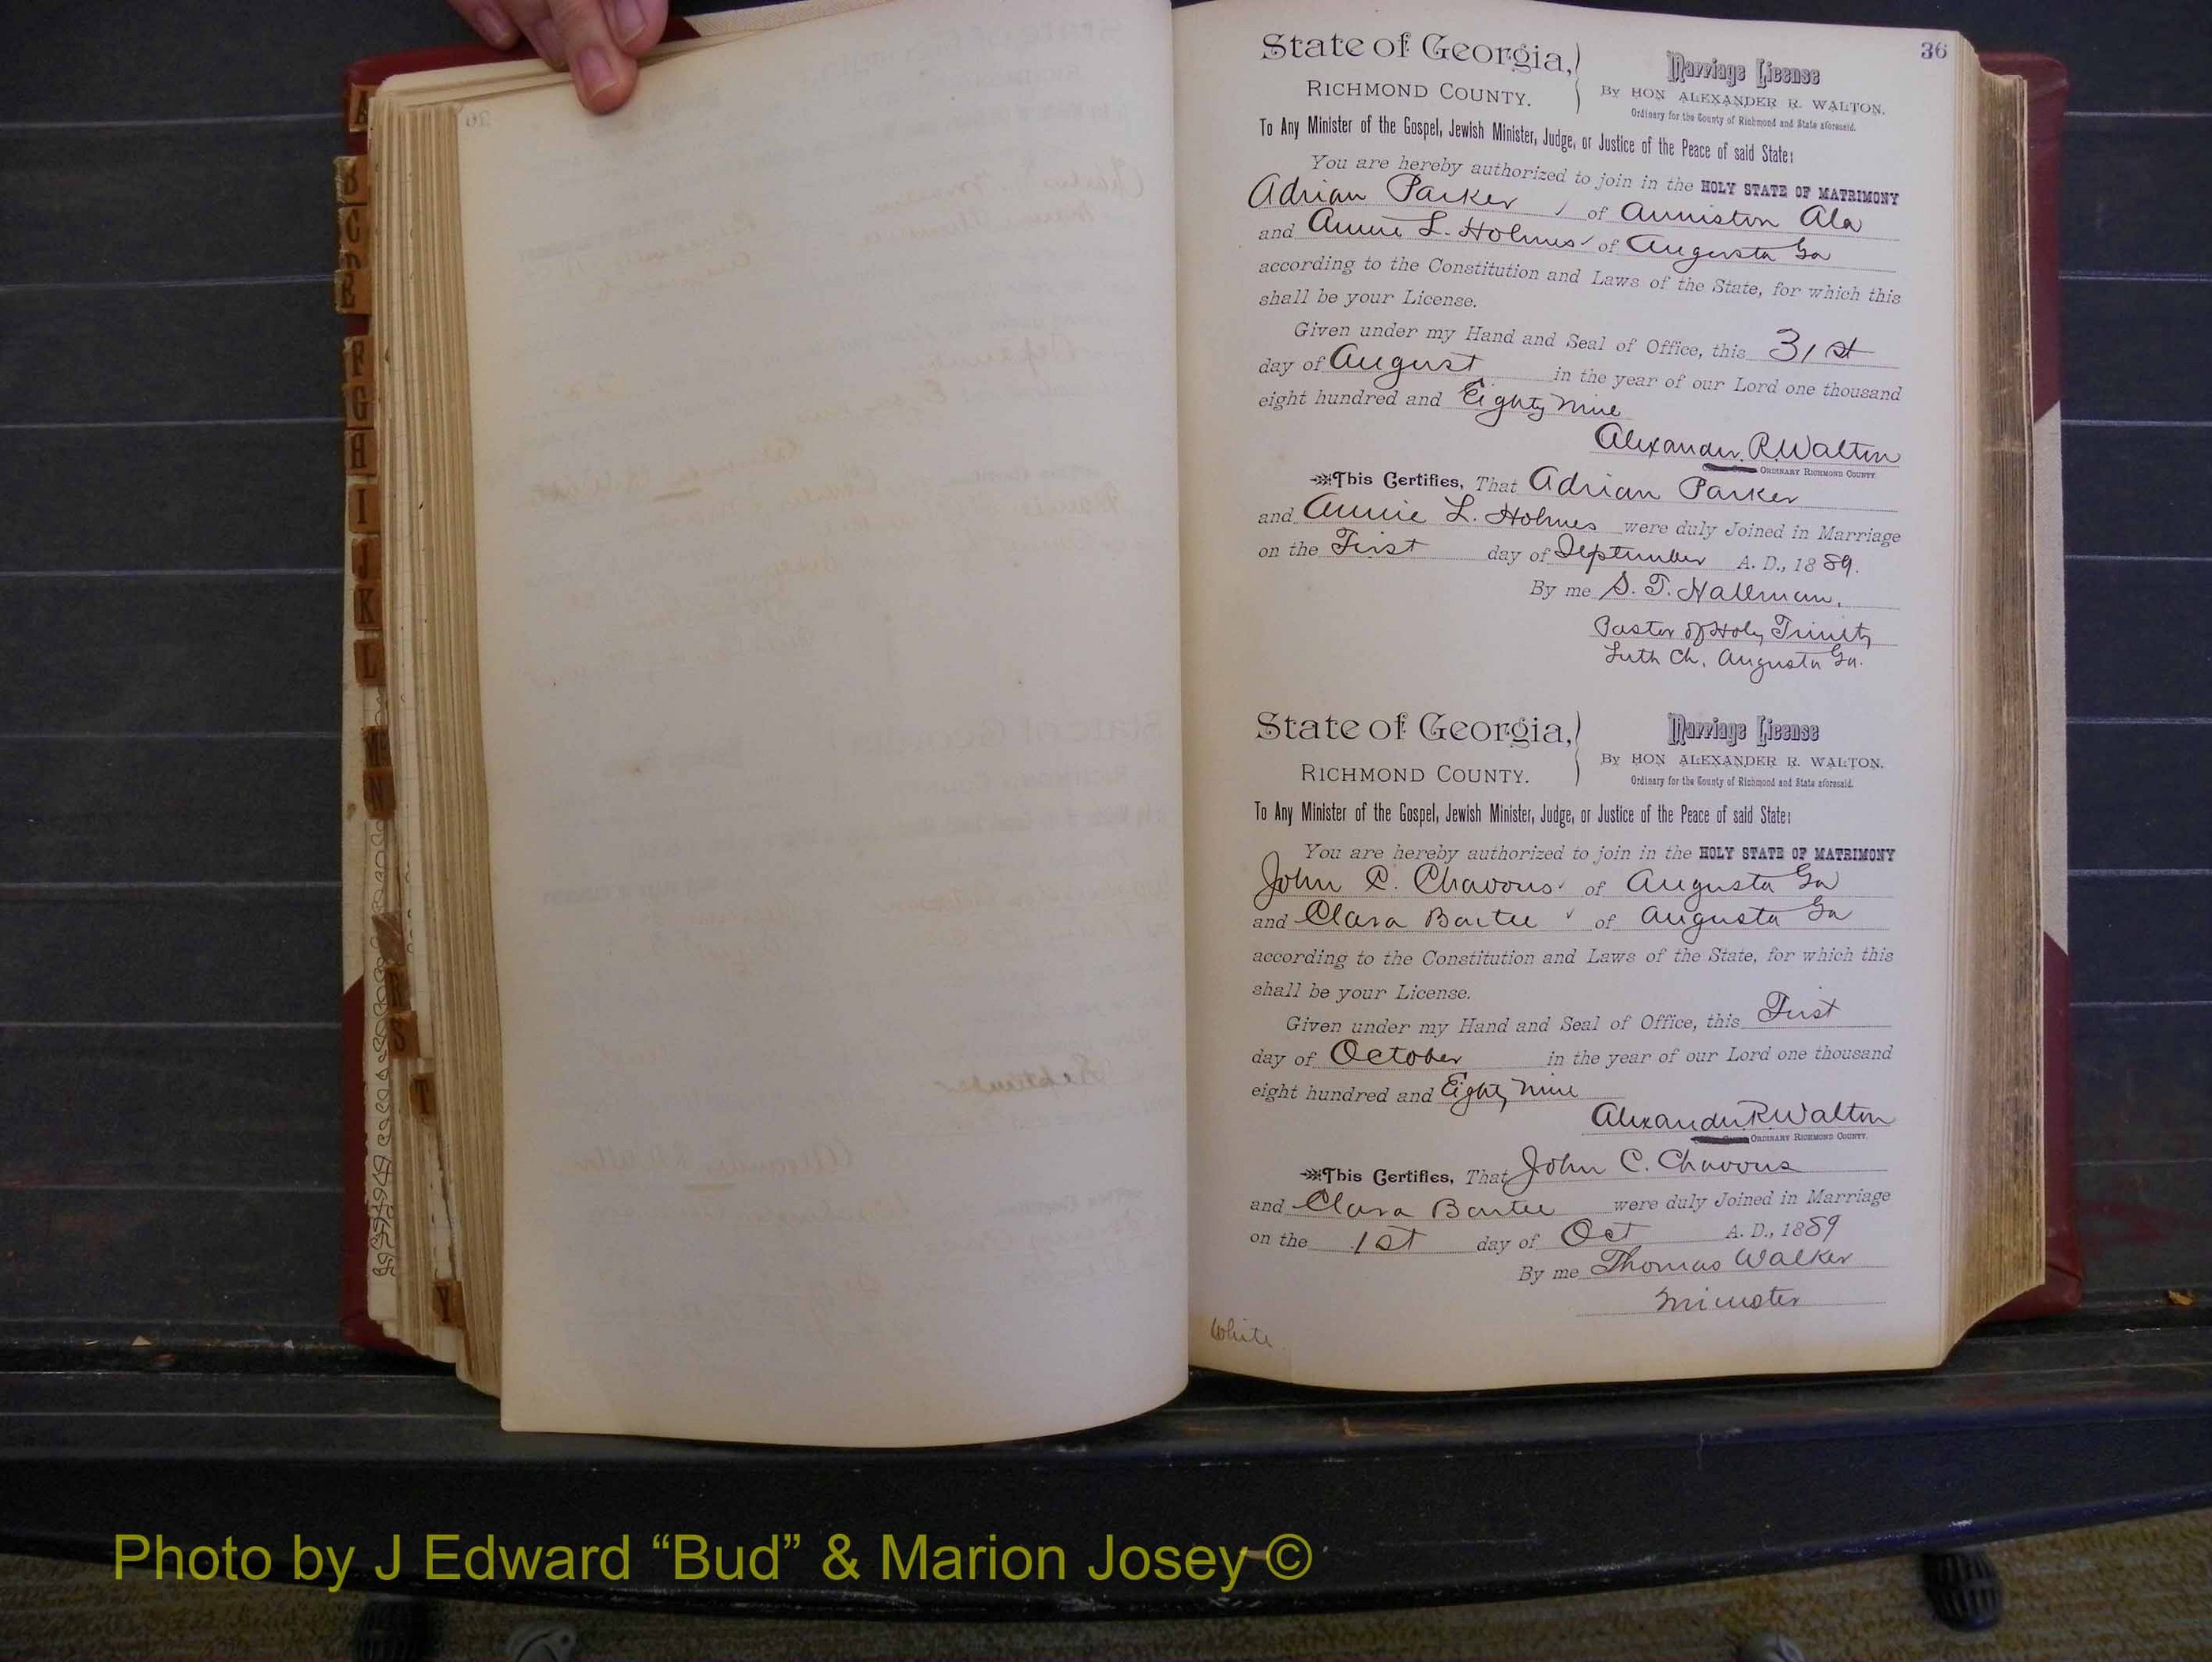 36
State of Georgia,
RICHMOND COUNTY.
Marriage License
By HON ALEXANDER R. WALTON.
Ordinary for the County of Richmond and State aforesaid.
To Any Minister of the Gospel, Jewish Minister, Judge, or Justice of the Peace of said State:
You are hereby authorized to join in the HOLY STATE OF MATRIMONY
Adrian Parker of Anniston Ala
and Annie L. Holmes of Augusta Ga
according to the Constitution and Laws of the State, for which this
shall be your License.
Given under my Hand and Seal of Office, this 31st
day of August in the year of our Lord one thousand
eight hundred and Eighty nine
Alexander R. Walton
ORDINARY RICHMOND COUNTY
This Certifies, That Adrian Parker
and Annie L. Holmes were duly Joined in Marriage
on the First day of September A. D., 1889.
By me S. T. Hallman,
Pastor of Holy Trinity
Luth Ch. Augusta Ga.
State of Georgia,
RICHMOND COUNTY.
Marriage License
By HON ALEXANDER R. WALTON.
Ordinary for the County of Richmond and State aforesaid.
To Any Minister of the Gospel, Jewish Minister, Judge, or Justice of the Peace of said State:
You are hereby authorized to join in the HOLY STATE OF MATRIMONY
John C. Chavous of Augusta Ga
and Clara Bartee of Augusta Ga
according to the Constitution and Laws of the State, for which this
shall be your License.
Given under my Hand and Seal of Office, this First
day of October in the year of our Lord one thousand
eight hundred and Eighty nine
Alexander R Walton
ORDINARY RICHMOND COUNTY.
This Certifies, That John C. Chavous
and Clara Bartee were duly Joined in Marriage
on the 1st day of Oct A. D., 1889
By me Thomas Walker
Minister
White
A
B
C
E
F
G
H
I
J
K
L
M
N
S
T
Y
Photo by J Edward “Bud” & Marion Josey ©